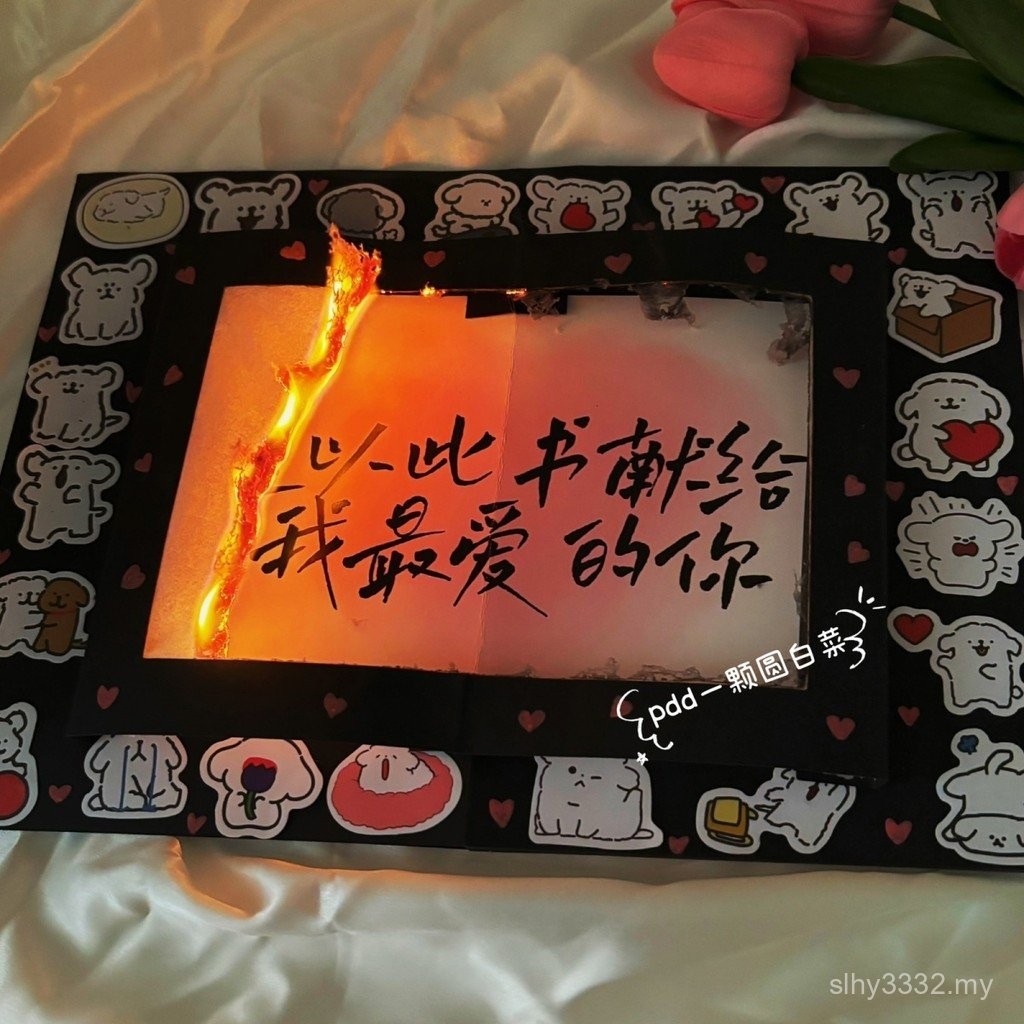 以此书献给
我最爱的你
pdd一颗圆白菜
slhy3332.my